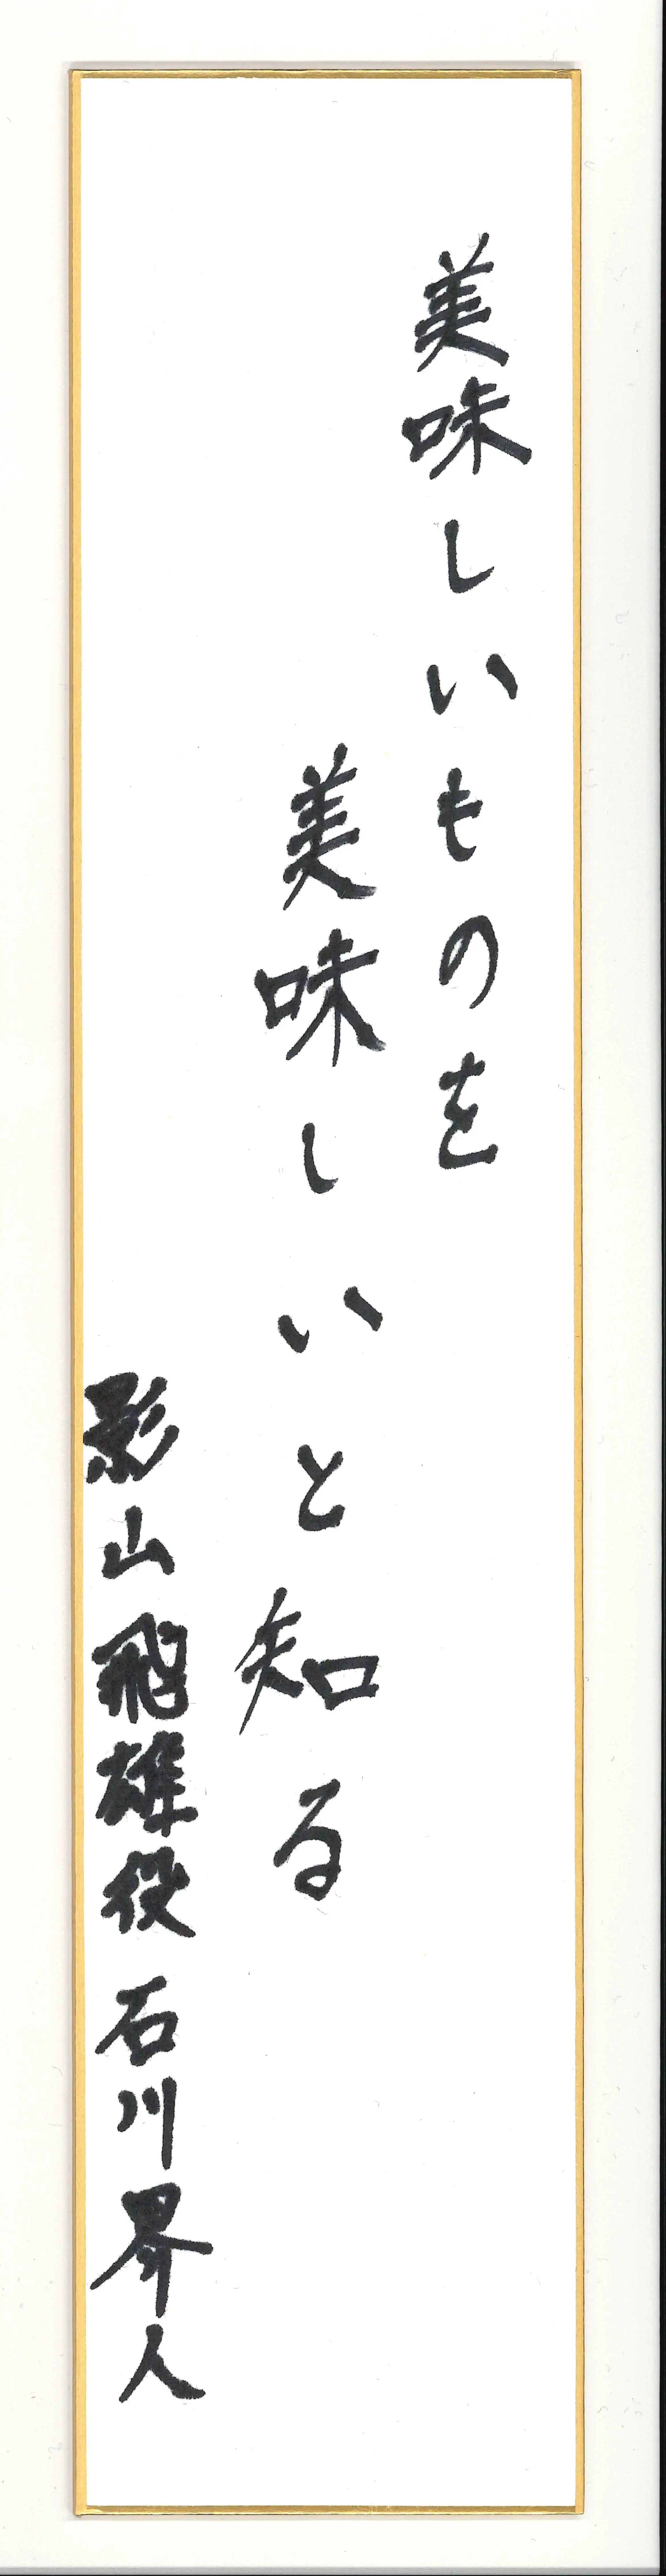 美味しいものを
美味しいと知る
影山飛雄役 石川界人